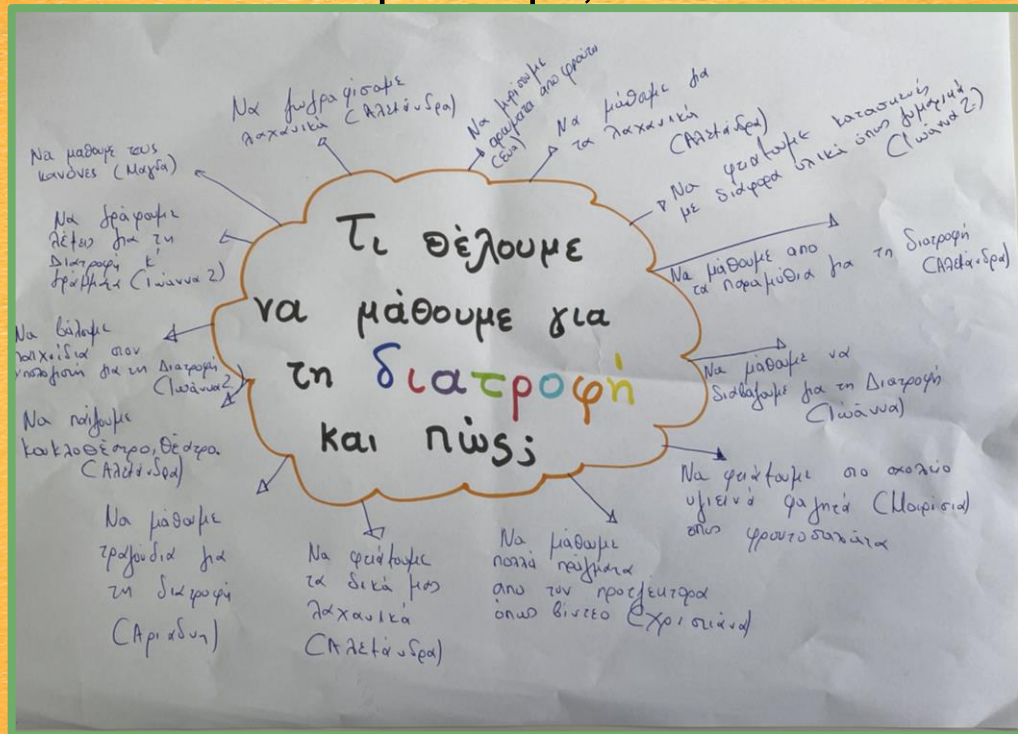 Τι θέλουμε
να μάθουμε για
τη διατροφή
και πώς;
Να ζωγραφίσουμε
λαχανικά (Αλεξάνδρα)
Να μυρίσουμε
αρώματα από φρούτα
(Εύα)
Να μάθουμε για
τα λαχανικά
(Αλεξάνδρα)
Να φτιάξουμε κατασκευές
με διάφορα υλικά όπως ζυμαρικά
(Ιωάννα Ζ)
Να μάθουμε απο
τα παραμύθια για τη διατροφή
(Αλεξάνδρα)
Να μάθουμε να
διαβάζουμε για τη Διατροφή
(Ιωάννα)
Να φτιάξουμε στο σχολείο
υγιεινά φαγητά (Μαιρισια)
όπως φρουτοσαλάτα
Να μάθουμε
πολλά πράγματα
απο τον προτζέκτορα
όπως βίντεο (Χριστιάνα)
Να φτιάξουμε
τα δικά μας
λαχανικά
(Αλεξάνδρα)
Να μάθουμε
τραγούδια για
τη διατροφή
(Αριάδνη)
Να παίξουμε
κουκλοθέατρο, θέατρο.
(Αλεξάνδρα)
Να βάλουμε
παιχνίδια στον
υπολογιστή για τη Διατροφή
(Ιωάννα Ζ)
Να γράψουμε
λέξεις για τη
Διατροφή κ'
γράμματα (Ιωάννα Ζ)
Να μάθουμε τους
κανόνες (Μάγδα)